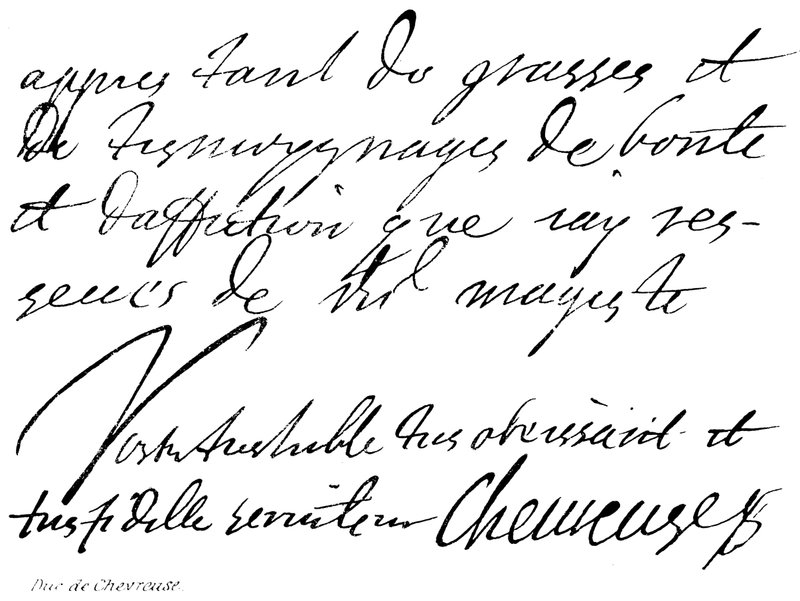 appres tant de grasses et
de tesmoygnages de bonte
et daffection que iay res-
seues de vtre mageste
Vostre treshuble tres obeissant et
tres fidelle serviteur Chevreuse
Duc de Chevreuse.